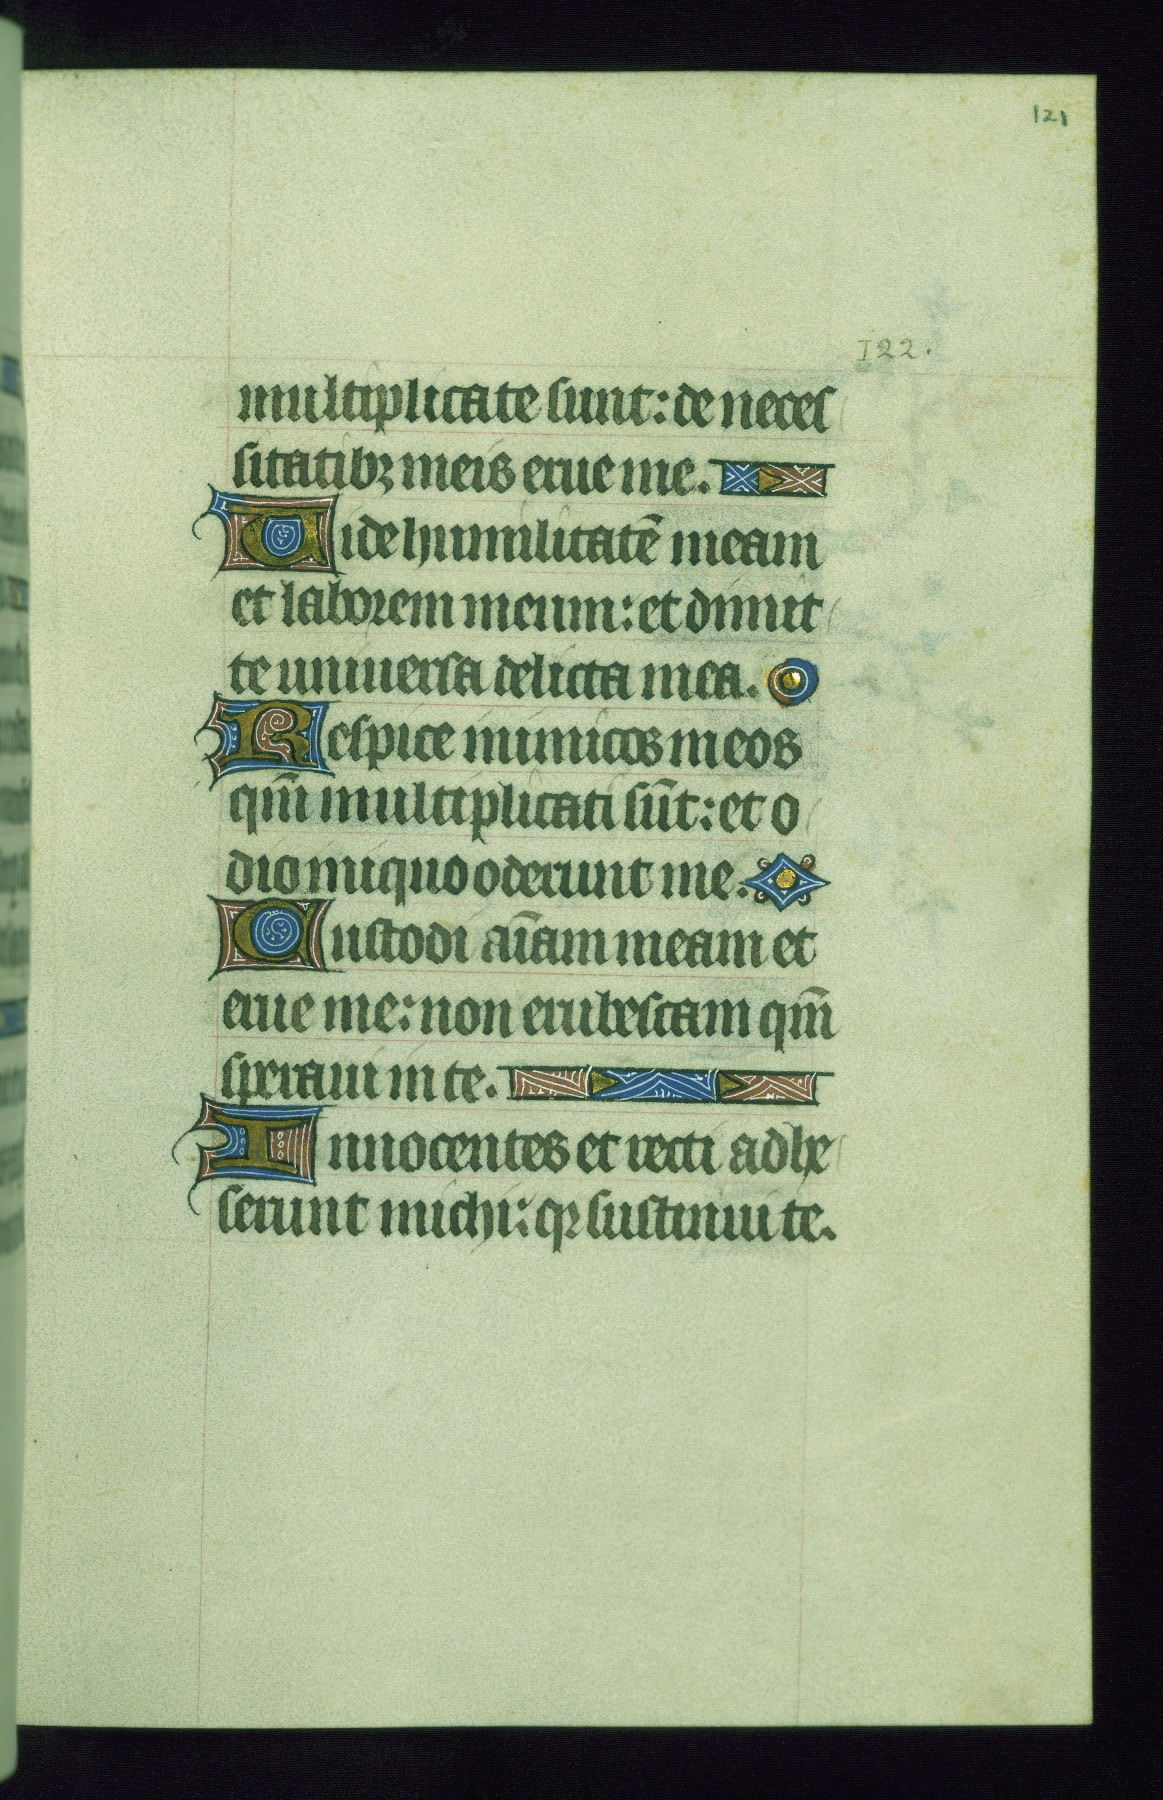 121
122.
multiplicate sunt: de neces
sitatibꝫ meis erue me.
Vide humilitatē meam
et laborem meum: et dimit
te universa delicta mea.
Respice inimicos meos
qm̄ multiplicati sūt: et o
dio iniquo oderunt me.
Custodi aīam meam et
erue me: non erubescam qm̄
speraui in te.
Innocentes et recti adhe
serunt michi: qꝛ sustinui te.